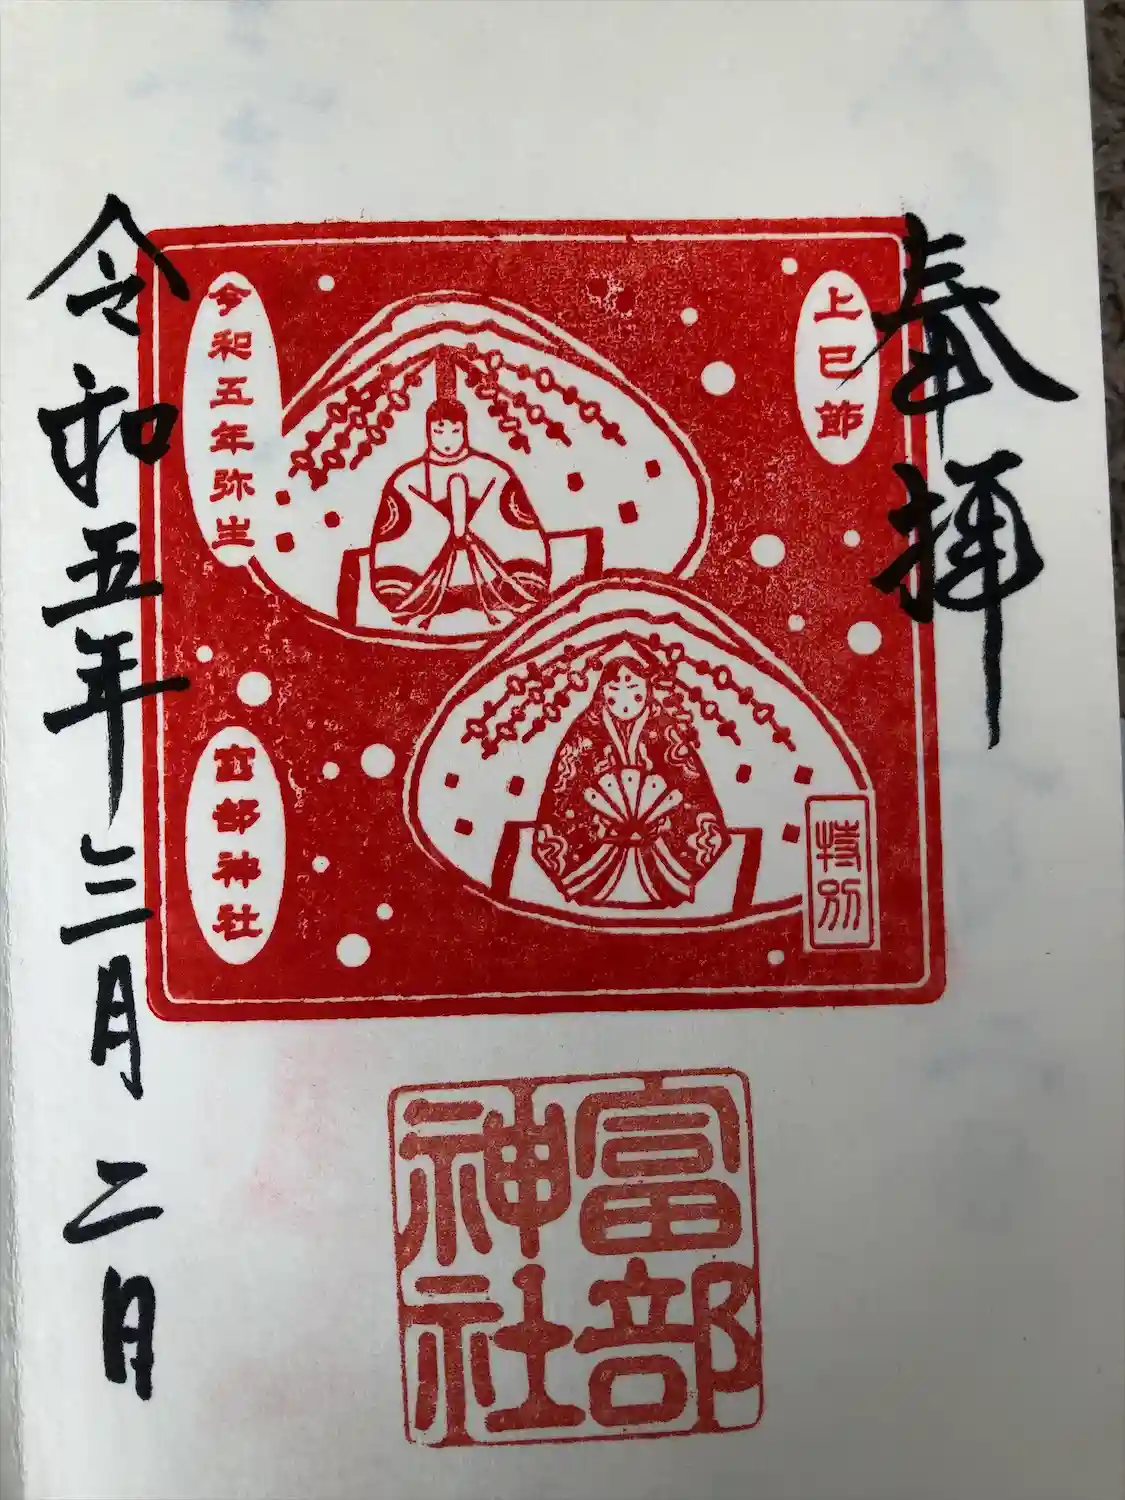 奉拝
上巳節
特別
令和五年弥生
富部神社
富部神社
令和五年三月二日